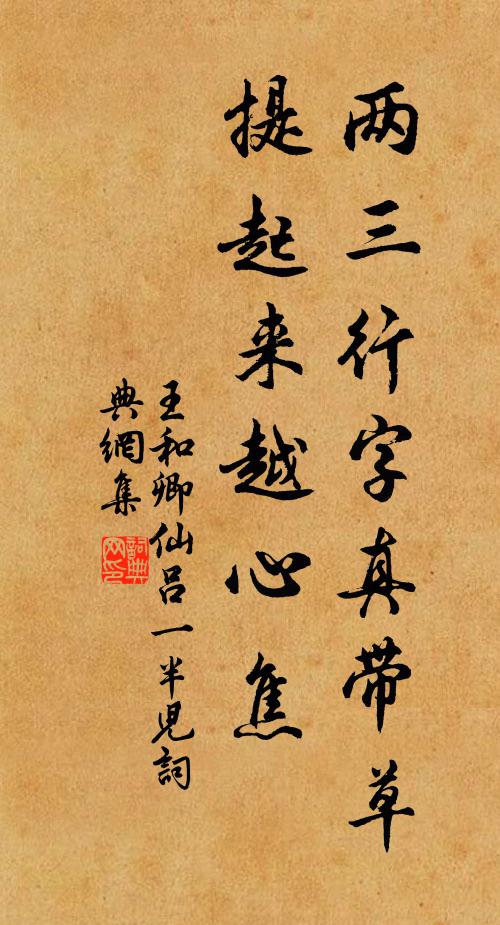 两三行字真带草
提起来越心焦
王和卿仙吕一半児詞
典網集
詞典
网印